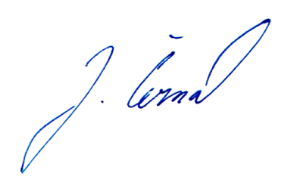 J. Černá